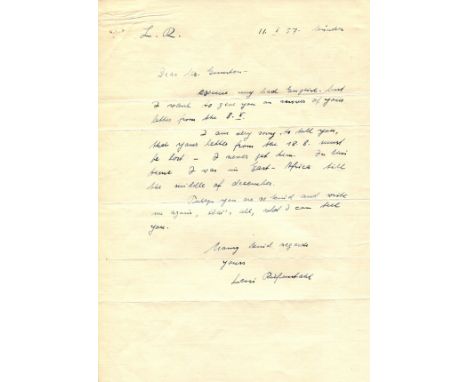 L. R.
11. I 57. München
Dear Mr.
excuse my bad English, but
I want to give you an answer of your
letter from the 8. I.
I am very sorry, to tell you,
that your letter from the 18. 8. must
be lost - I never get them. In this
time I was in East-Africa till
the middle of december.
Perhaps you are so kind and write
me again, that's all, what I can tell
you.
Many kind regards
yours
Leni Riefenstahl